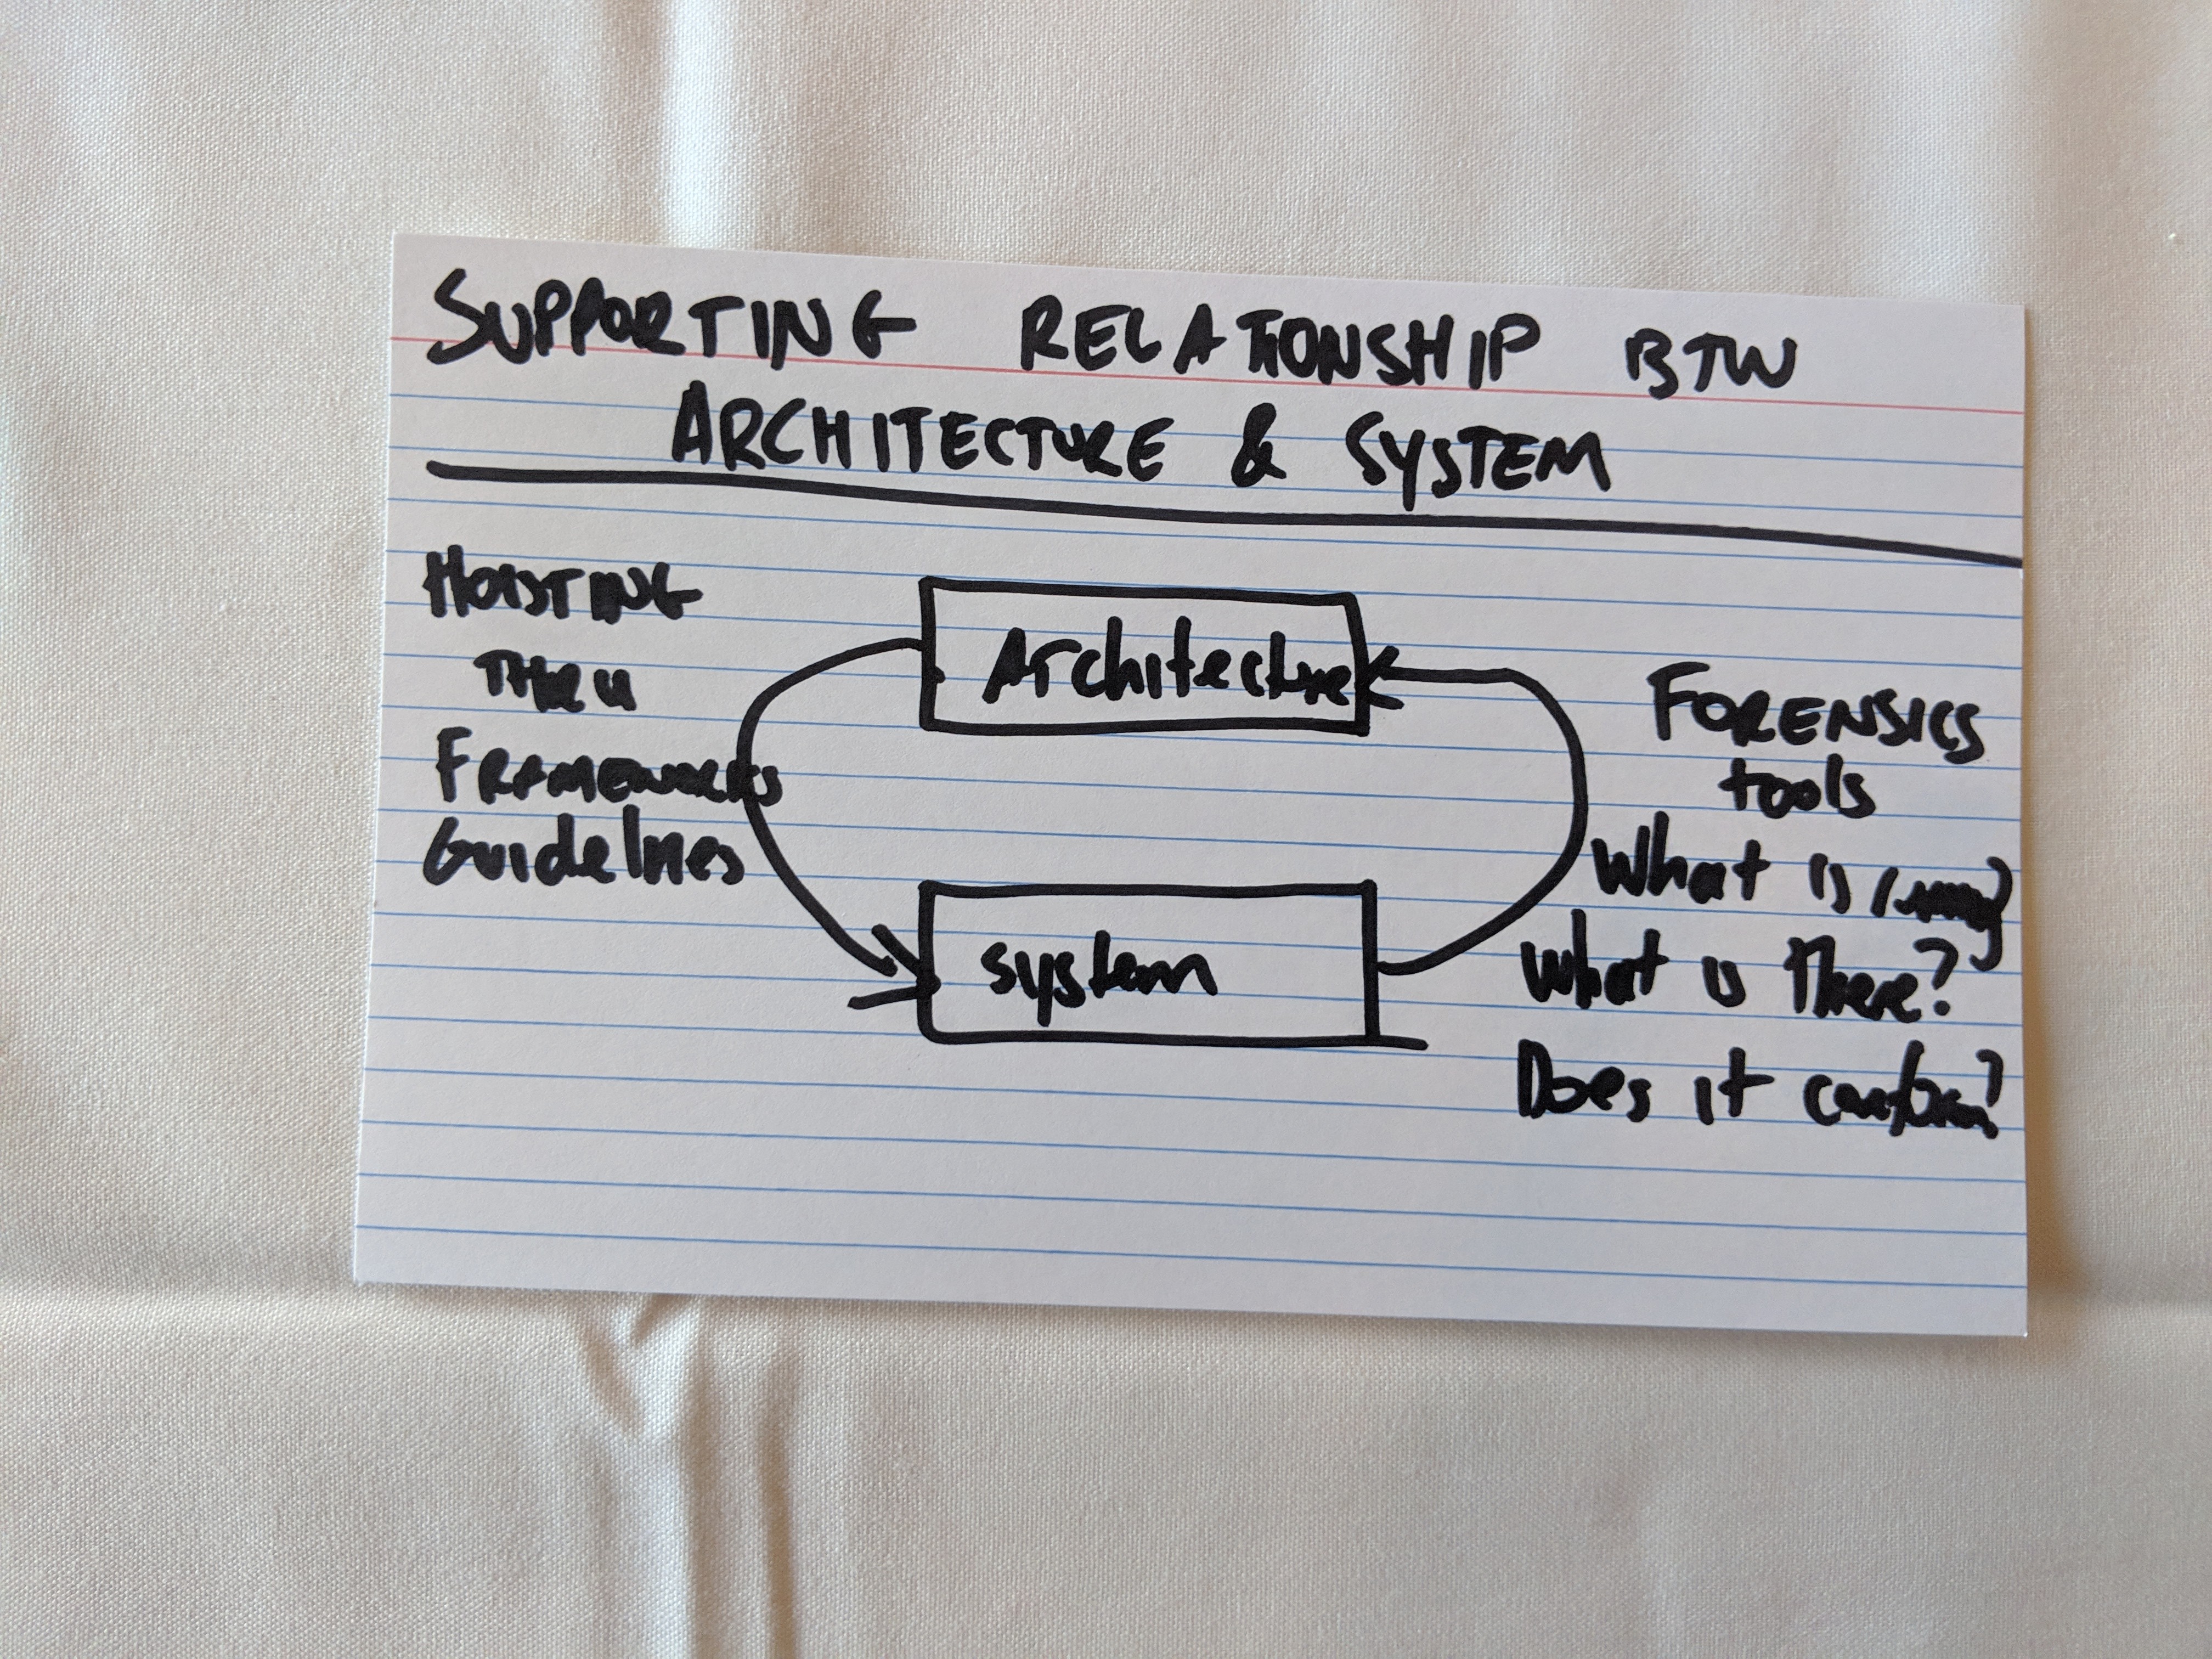 SUPPORTING RELATIONSHIP BTW
ARCHITECTURE & SYSTEM
HOISTING
THRU
FRAMEWORKS
Guidelines
Architecture
system
FORENSICS
tools
What is
What is There?
Does it conform?